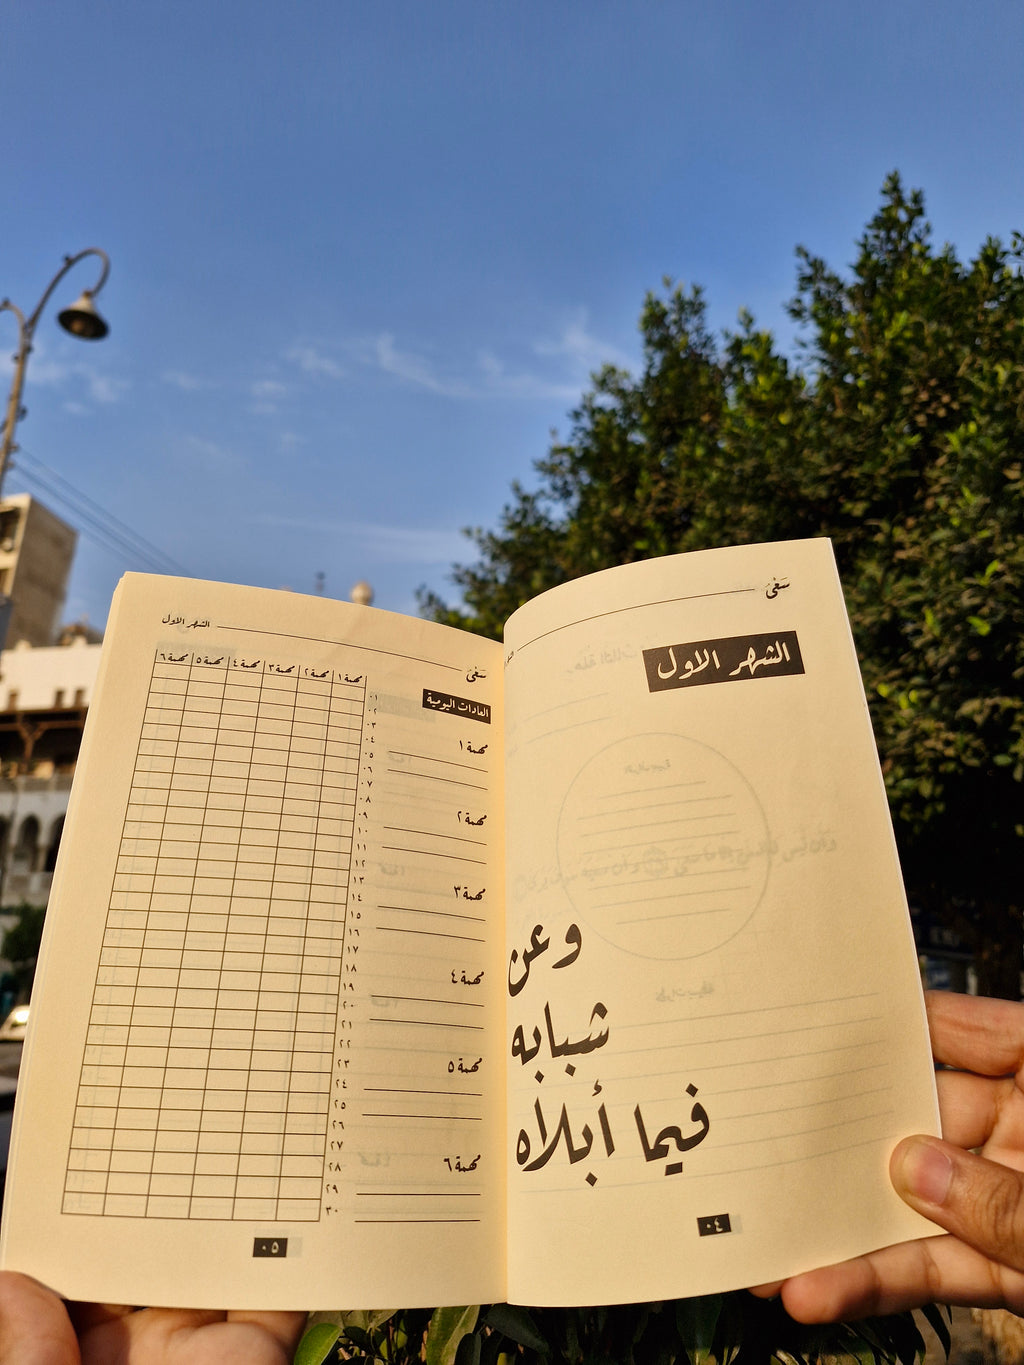 سَعْىٌ
الشهر الاول
وعن
شبابه
فيما أبلاه
٠٤
سَعْىٌ
الشهر الاول
العادات اليومية
مهمة ١
مهمة ٢
مهمة ٣
مهمة ٤
مهمة ٥
مهمة ٦
مهمة ١ مهمة ٢ مهمة ٣ مهمة ٤ مهمة ٥ مهمة ٦
٠١
٠٢
٠٣
٠٤
٠٥
٠٦
٠٧
٠٨
٠٩
١٠
١١
١٢
١٣
١٤
١٥
١٦
١٧
١٨
١٩
٢٠
٢١
٢٢
٢٣
٢٤
٢٥
٢٦
٢٧
٢٨
٢٩
٣٠
٠٥